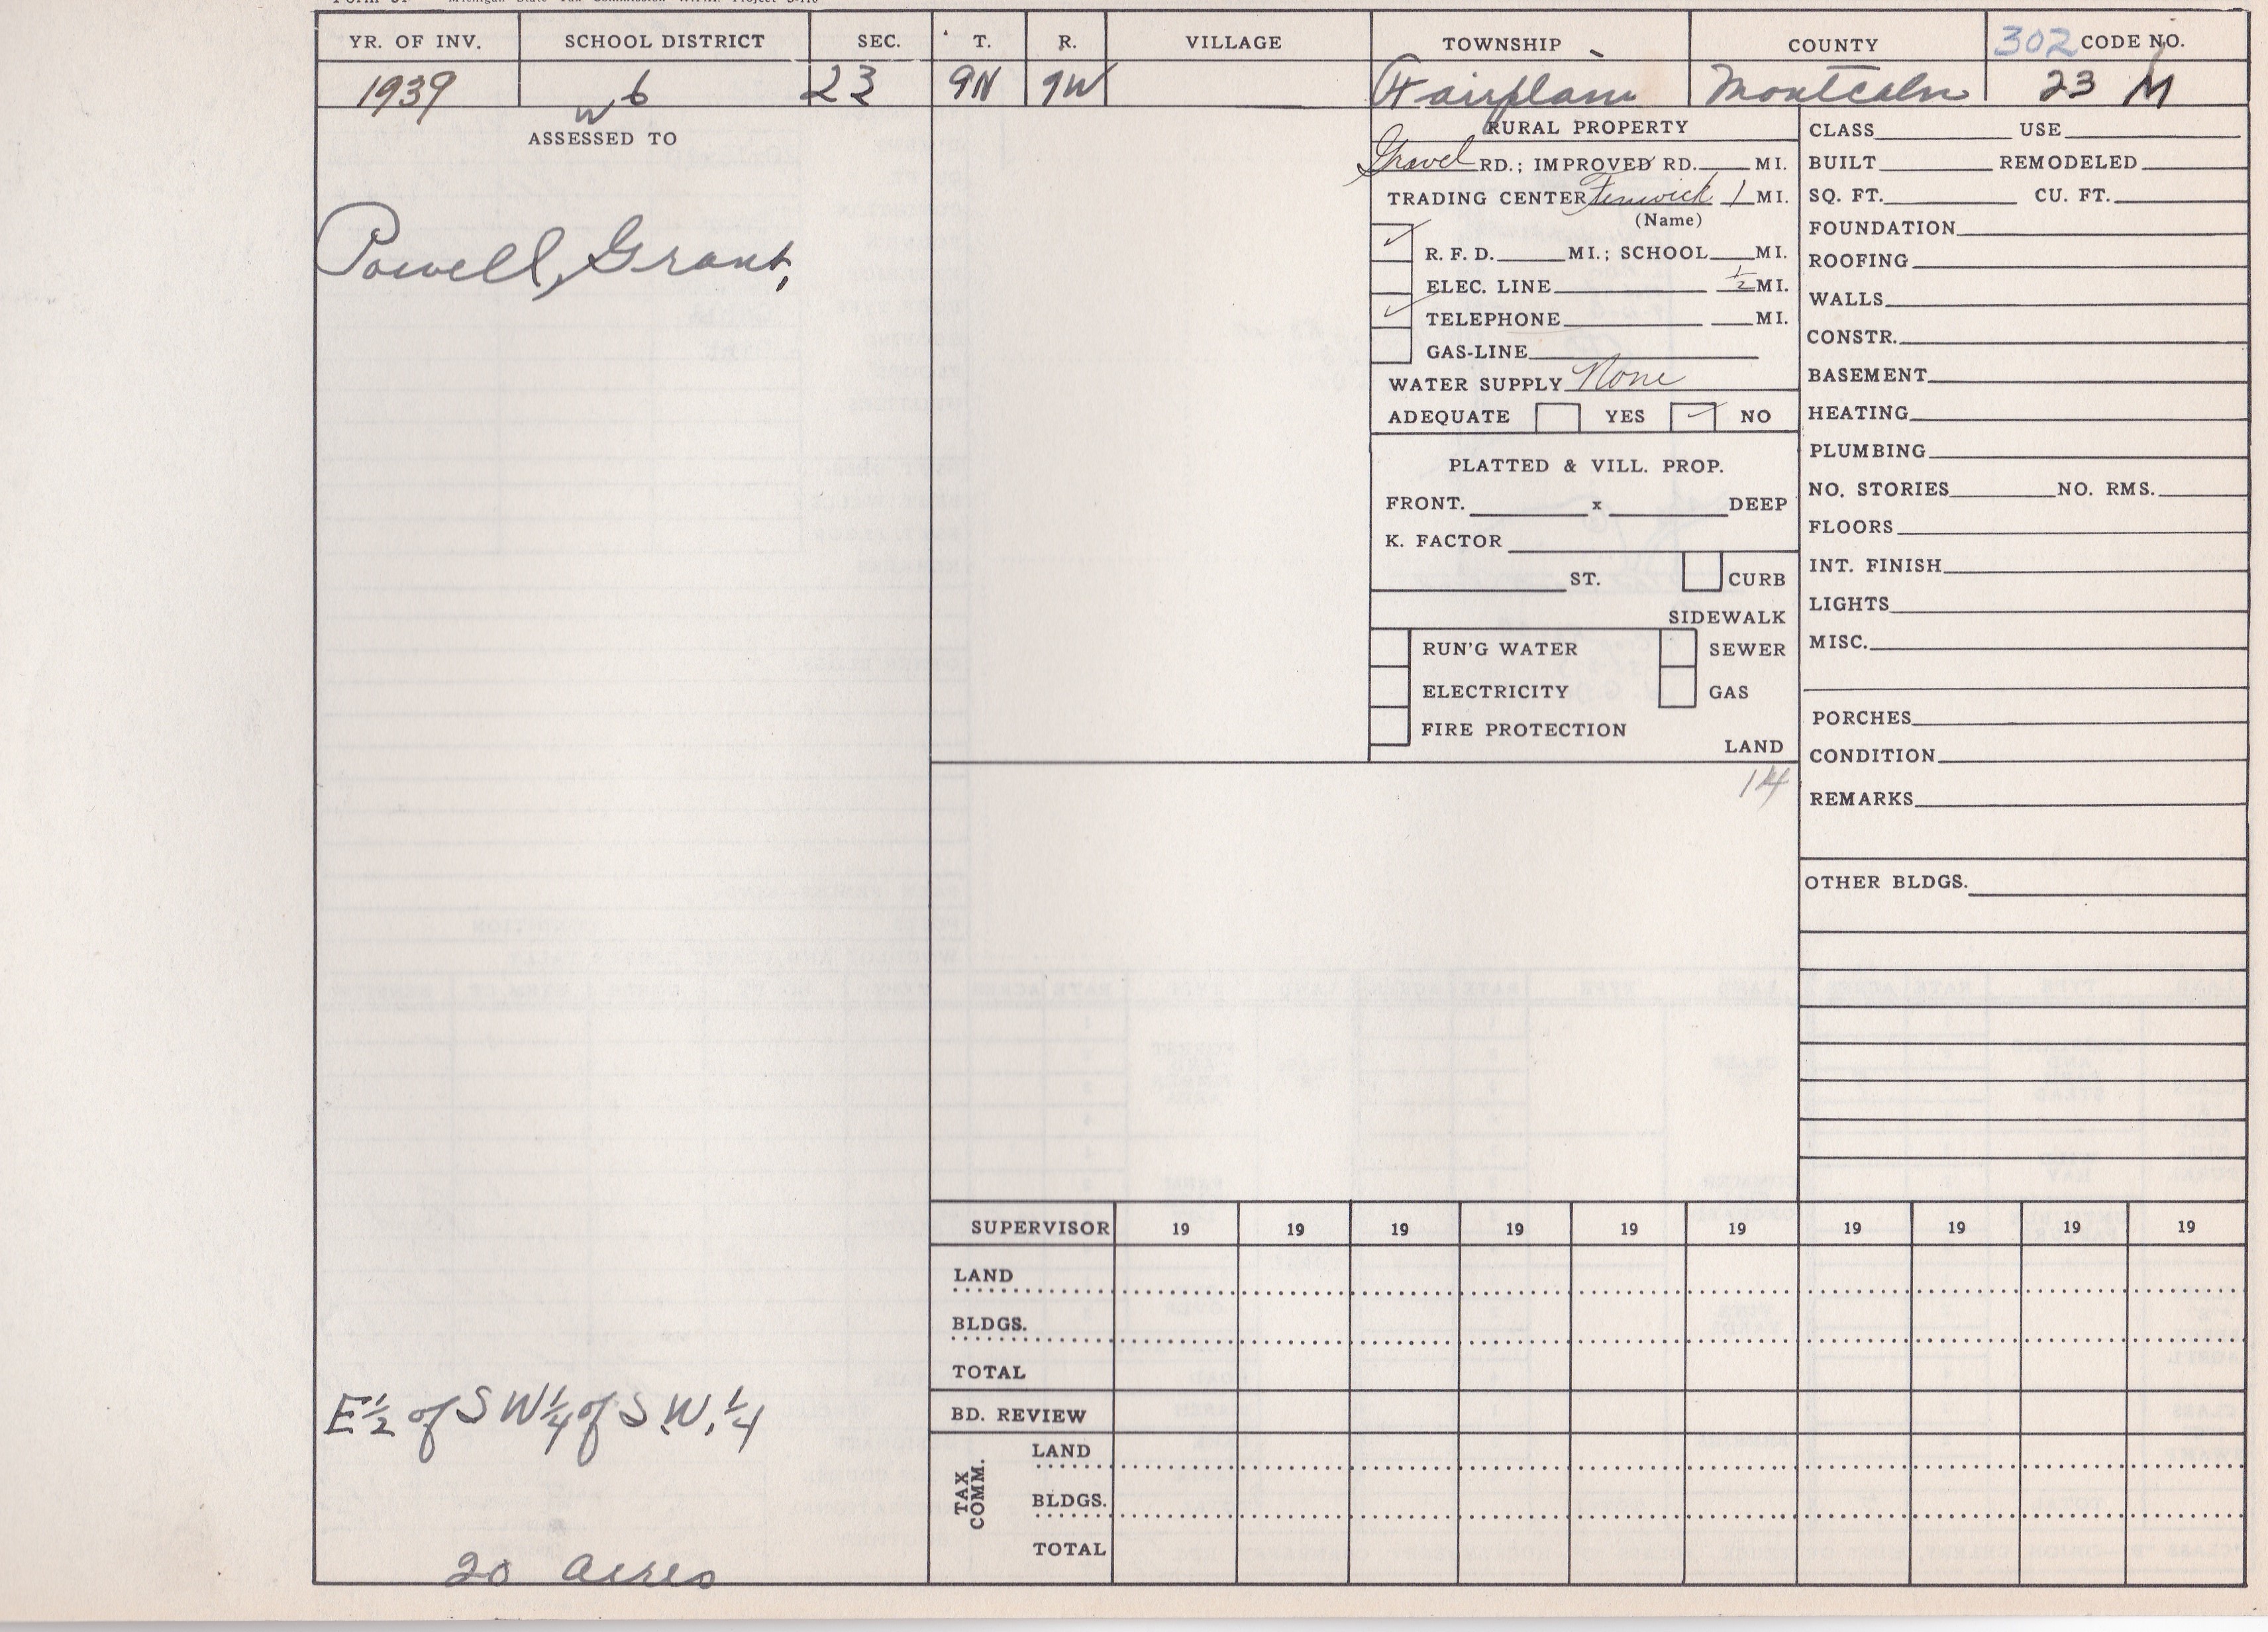 YR. OF INV. SCHOOL DISTRICT SEC. T. R. VILLAGE TOWNSHIP COUNTY 302 CODE NO.
1939 W 6 23 9N 9W Fairplain Montcalm 23 M
ASSESSED TO
Powell, Grant,
E 1/2 of S W 1/4 of S.W. 1/4
20 acres
RURAL PROPERTY
Gravel RD.; IMPROVED RD. MI.
TRADING CENTER Fenwick 1 MI.
(Name)
✓ R. F. D. MI.; SCHOOL MI.
ELEC. LINE 1/2 MI.
✓ TELEPHONE MI.
GAS-LINE
WATER SUPPLY None
ADEQUATE YES ✓ NO
PLATTED & VILL. PROP.
FRONT. x DEEP
K. FACTOR
ST. CURB
SIDEWALK
RUN'G WATER SEWER
ELECTRICITY GAS
FIRE PROTECTION
LAND
14
CLASS USE
BUILT REMODELED
SQ. FT. CU. FT.
FOUNDATION
ROOFING
WALLS
CONSTR.
BASEMENT
HEATING
PLUMBING
NO. STORIES NO. RMS.
FLOORS
INT. FINISH
LIGHTS
MISC.
PORCHES
CONDITION
REMARKS
OTHER BLDGS.
SUPERVISOR 19 19 19 19 19 19 19 19 19 19
LAND
BLDGS.
TOTAL
BD. REVIEW
TAX COMM.
LAND
BLDGS.
TOTAL